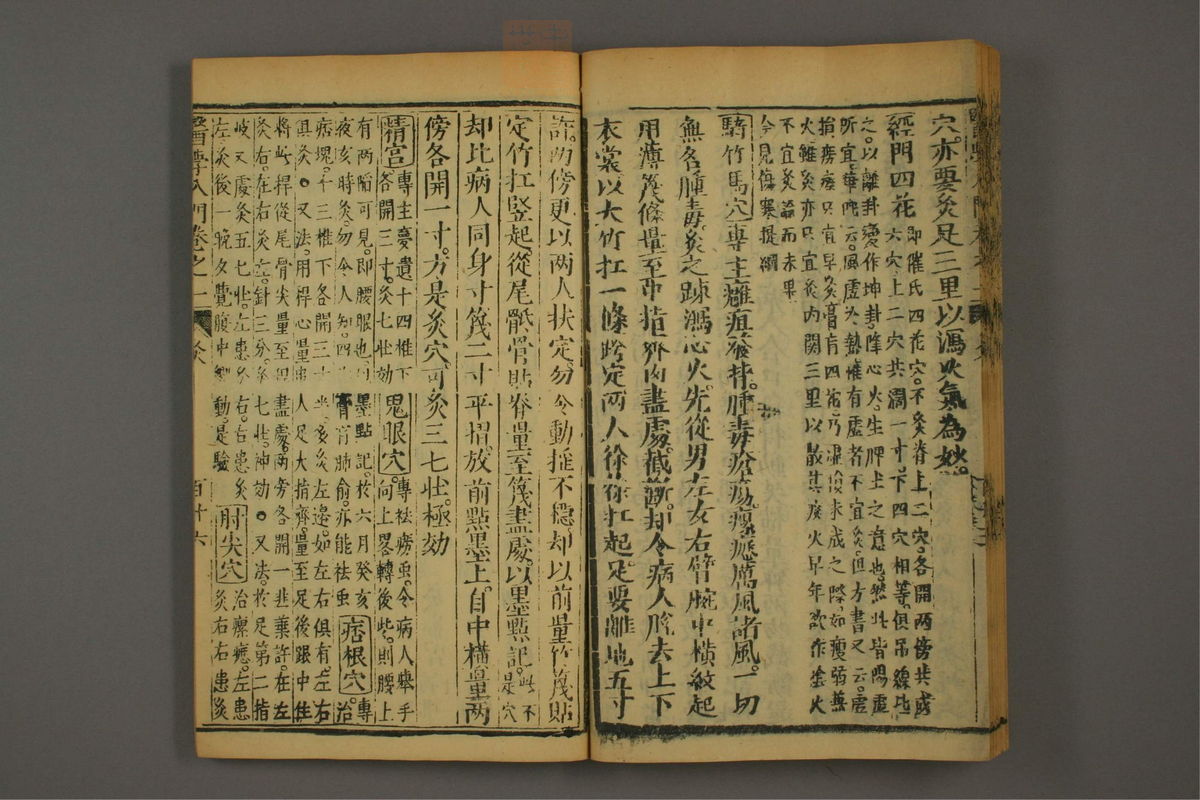 穴亦要灸足三里以瀉火氣為妙
經門四花即崔氏四花穴不灸脊上二穴各開兩傍共成
六穴上二穴共濶一寸下四穴相等俱吊線比
之以離卦變作坤卦降心火生脾土之意也然此皆陽虛
所宜華佗云風虛冷熱惟有虛者不宜灸但方書又云虛
損癆瘵只宜早灸膏肓四花乃虛損未成之際如瘦弱兼
火雖灸亦只宜灸內關三里以散其痰火早年欲作陰火
不宜灸論而未畢
今見傷寒提綱
騎竹馬穴專主癰疽發背腫毒瘡瘍瘰癧厲風諸風一切
無名腫毒灸之踈瀉心火先從男左女右臂腕中橫紋起
用薄篾條量至中指齊肉盡處截斷却令病人脫去上下
衣裳以大竹扛一條跨定兩人徐徐扛起足要離地五寸
許兩傍更以兩人扶定勿令動搖不穩却以前量竹篾貼
定竹扛竪起從尾骶骨貼脊量至篾盡處以墨點記此不是穴
却比病人同身寸篾二寸平摺放前點墨上自中橫量兩
傍各開一寸方是灸穴可灸三七壯極効
精宮專主夢遺十四椎下各開三寸灸七壯効
鬼眼穴專袪癆虫令病人舉手向上畧轉後些則腰上
有兩陷可見即腰眼也以墨點記於六月癸亥
夜亥時灸勿令人知四
膏肓肺俞亦能袪虫
痞根穴專治
痞塊十三椎下各開三寸半多灸左邊如左右俱有左右
俱灸又法用稈心量患人足大指齊量至足後跟中住
將此稈從尾骨尖量至稈盡處兩旁各開一韭葉許在左
灸右在右灸左針三分灸七壯神効又法於足第二指
岐叉處灸五七壯左患灸右右患灸
左灸後一晚夕覺腹中響動是驗
肘尖穴治瘰癧左患灸右右患灸
醫學入門卷之一
灸
百十六